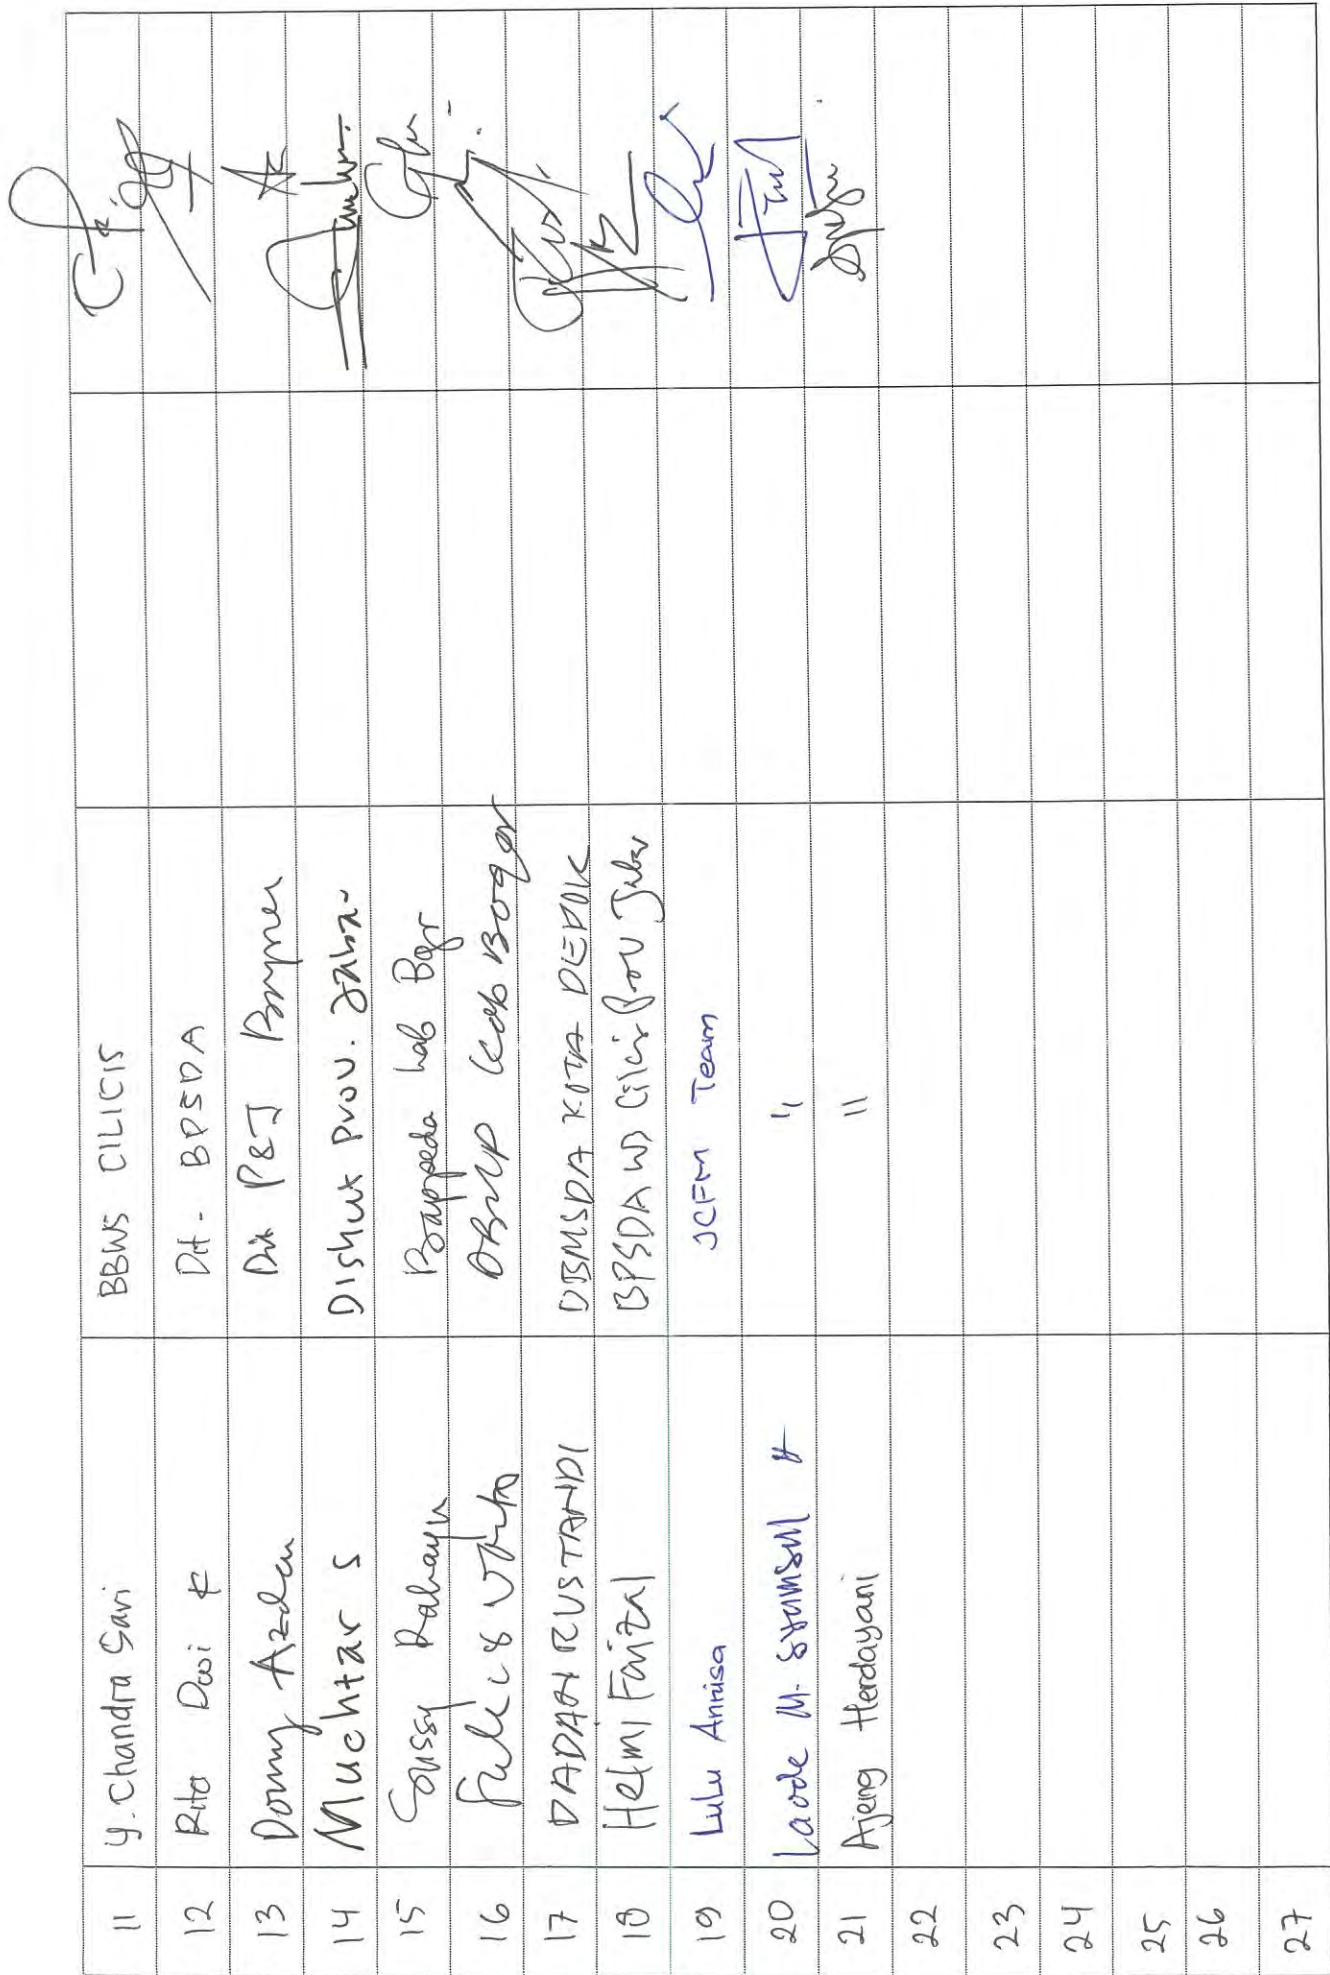 11 Y. Chandra Sari BBWS CILICIS
12 Rita Dwi K Dit - BPSDA
13 Donny Azdan Dit P&J
14 Muchtar S Dishut Prov. Jabar
15 Sussy Rahayu Bappeda kab Bgr
16 DBMP Kab Bogor
17 DADAN RUSTANDI DBMSDA KOTA DEPOK
18 Helmi Faizal BPSDA WS Cilcis Prov Jabar
19 Lulu Annisa JCFM Team
20 Laode M. SYAMSUL H "
21 Ajeng Herdayani "
22
23
24
25
26
27